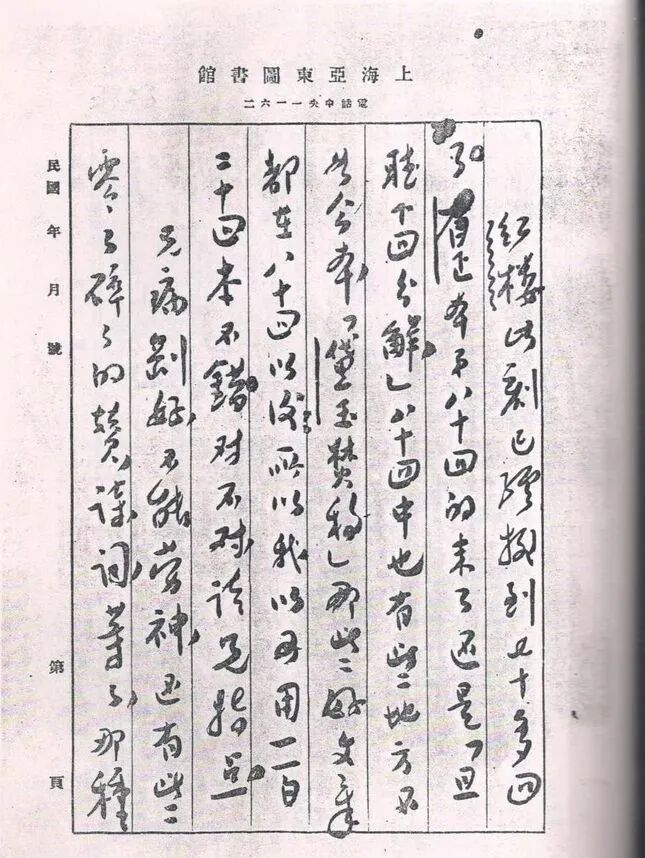 上海亞東圖書館
電話中央一一六二
紅樓此刻已經校到七十多回
了有正本第八十回的末了還是「且
聽下回分解」八十回中也有些地方不
今本「黛玉焚稿」那些好文章
都在八十回以後所以我以為用一百
二十回本不錯對不對請兄指
兄病剛好不能勞神還有些
零零碎碎的贊詩詞等等那種
民國 年 月 號 第 頁